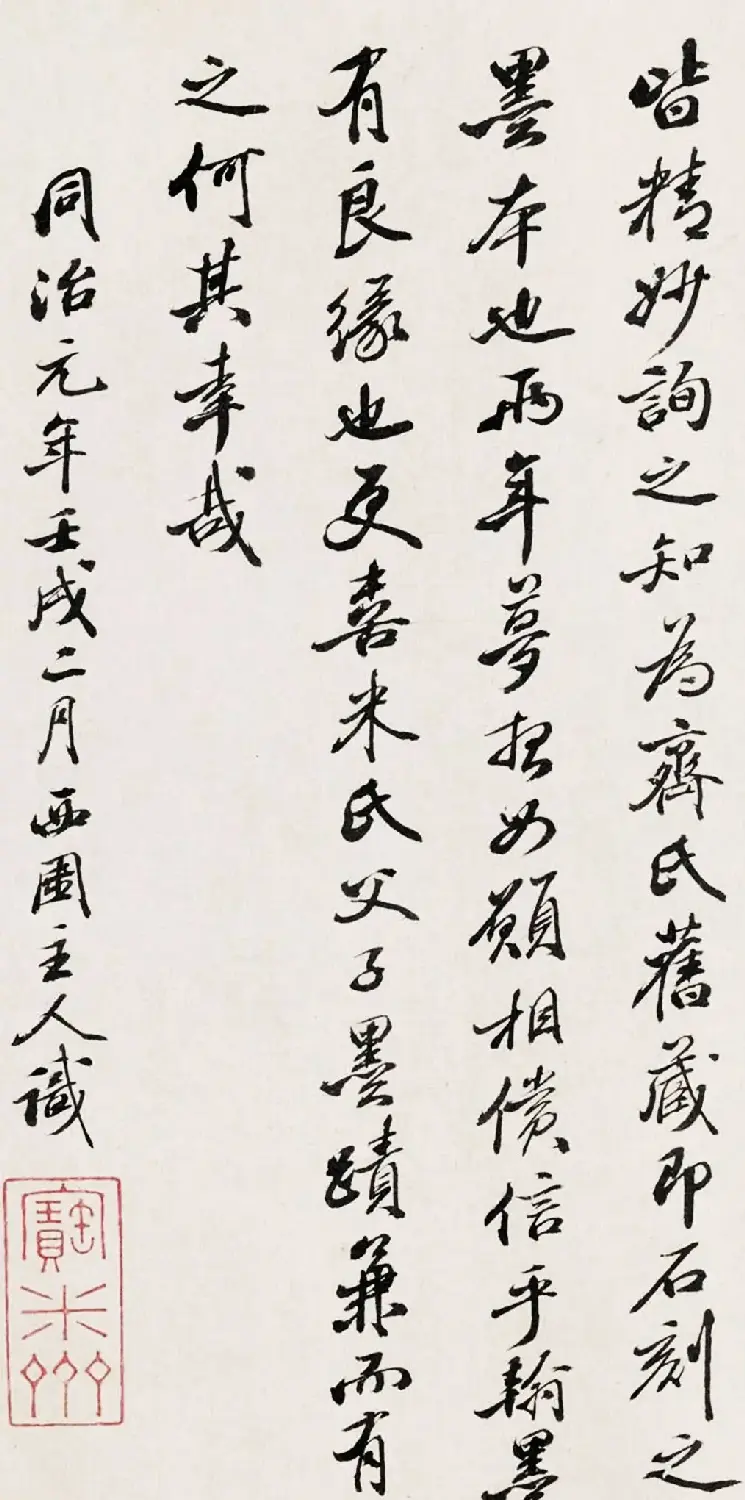 皆精妙詢之知為齊氏舊藏即石刻之
墨本也兩年夢想如願相償信乎翰墨
有良緣也更喜米氏父子墨蹟兼而有
之何其幸哉
同治元年壬戌二月西圃主人識
寶米齋